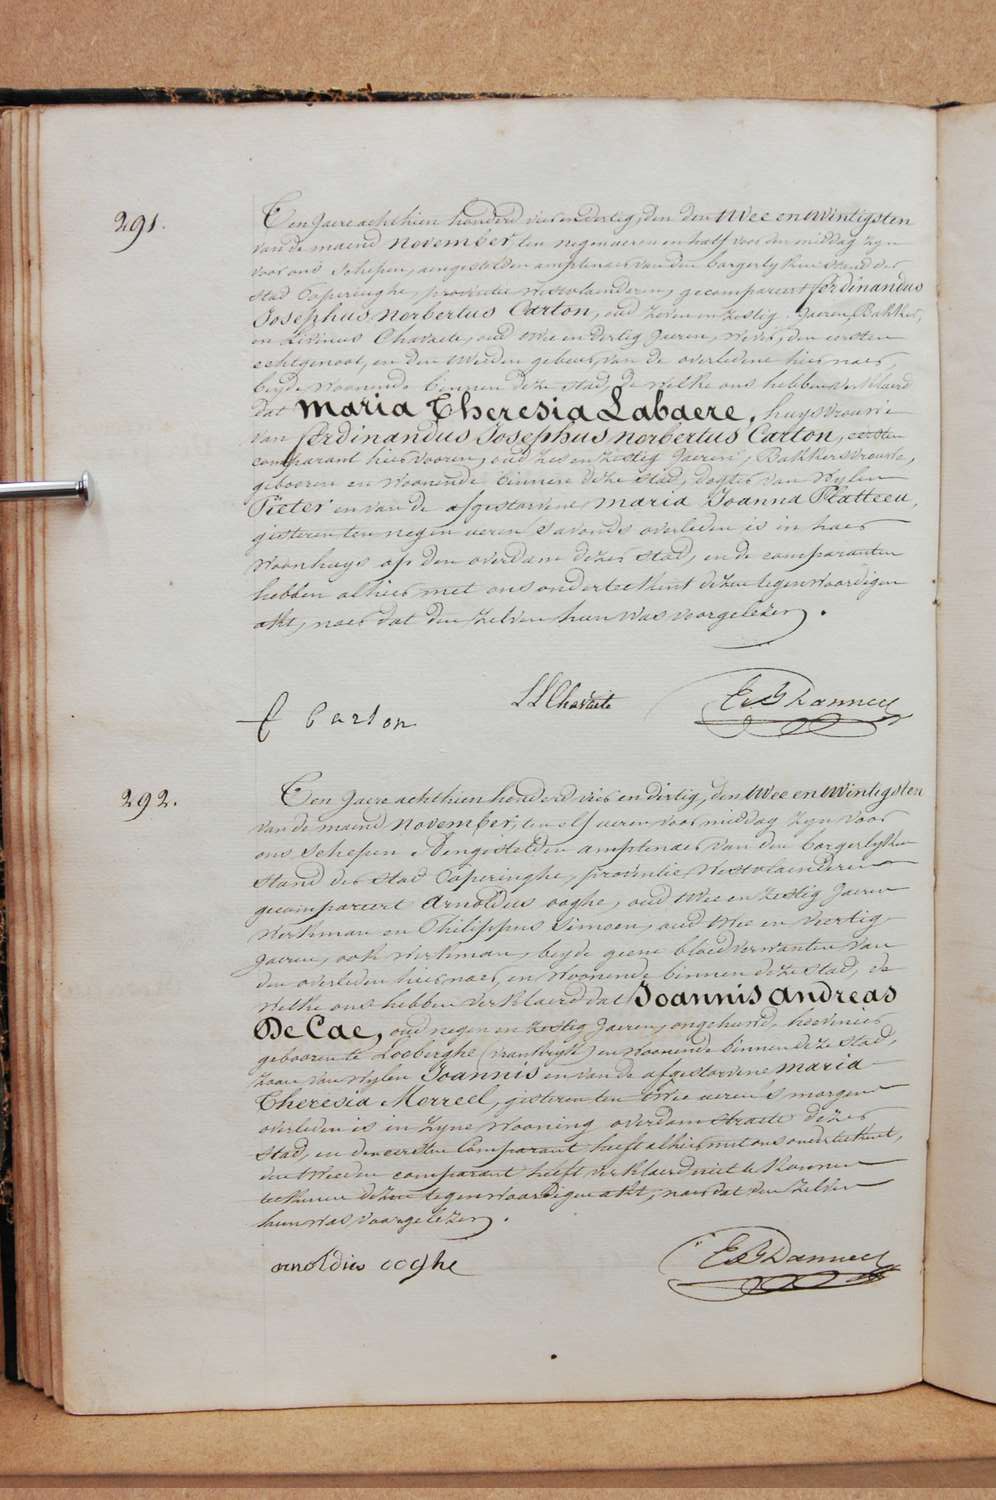 291.
Ten Jaere achthien honderd vier en dertig, den den twee en twintigsten
van de maend November ten negen ueren en half voor den middag zyn
voor ons Schepen, aengestelden amptenaer van den borgerlyken stand der
Stad Poperinghe, provintie Westvlaenderen, gecompareert Ferdinandus
Josephus Norbertus Carton, oud zeven en zestig Jaeren, Bakker,
en Livinus Chavaete, oud twee en dertig Jaeren, wever, den eersten
echtgenoot, en den tweeden gebeur, van de overledene hier naer,
beyde woonende binnen deze stad, de welke ons hebben verklaerd
dat Maria Theresia Labaere, huysvrouwe
van Ferdinandus Josephus Norbertus Carton, eersten
comparant hier vooren, oud zes en zestig Jaeren, Bakkersvrouwe,
gebooren en woonende binnen deze stad, dogter van wylen
Pieter en van de afgestorvene Maria Joanna Platteeu,
gisteren ten negen ueren s'avonds overleden is in haer
woonhuys op den overdam dezer stad, en de comparanten
hebben alhier met ons onderteekent dezen tegenwoordigen
akt, naer dat den zelven hun was voorgelezen.
f Carton L L Chavaete E D'Hanneeu
292.
Ten Jaere achthien honderd vier en dertig, den twee en twintigsten
van de maend November, ten elf ueren voor middag zyn voor
ons, Schepen aengestelden amptenaer van den borgerlyken
Stand der Stad Poperinghe, provintie Westvlaenderen
gecompareert Arnoldus ooghe, oud twee en zestig Jaeren
werkman en Philippus Simoen, oud twee en veertig
Jaeren, ook werkman, beyde geene bloedverwanten van
den overleden hier naer, en woonende binnen deze stad, de
welke ons hebben verklaerd dat Joannis Andreas
De Cae, oud negen en zestig Jaeren, ongehuwd, hovenier
gebooren te Looberghe (vrankryk) en woonende binnen deze stad,
zoon van wylen Joannis en van de afgestorvene Maria
Theresia Merreel, gisteren ten twee ueren 's morgens
overleden is in zyne wooning overdam straete dezer
stad, en den eersten Comparant heeft alhier met ons onderteekent,
den tweeden comparant heeft verklaerd niet te konnen
teekenen dezen tegenwoordigen akt, naer dat den zelven
hun was voorgelezen.
arnoldus ooghe E D'Hanneeu